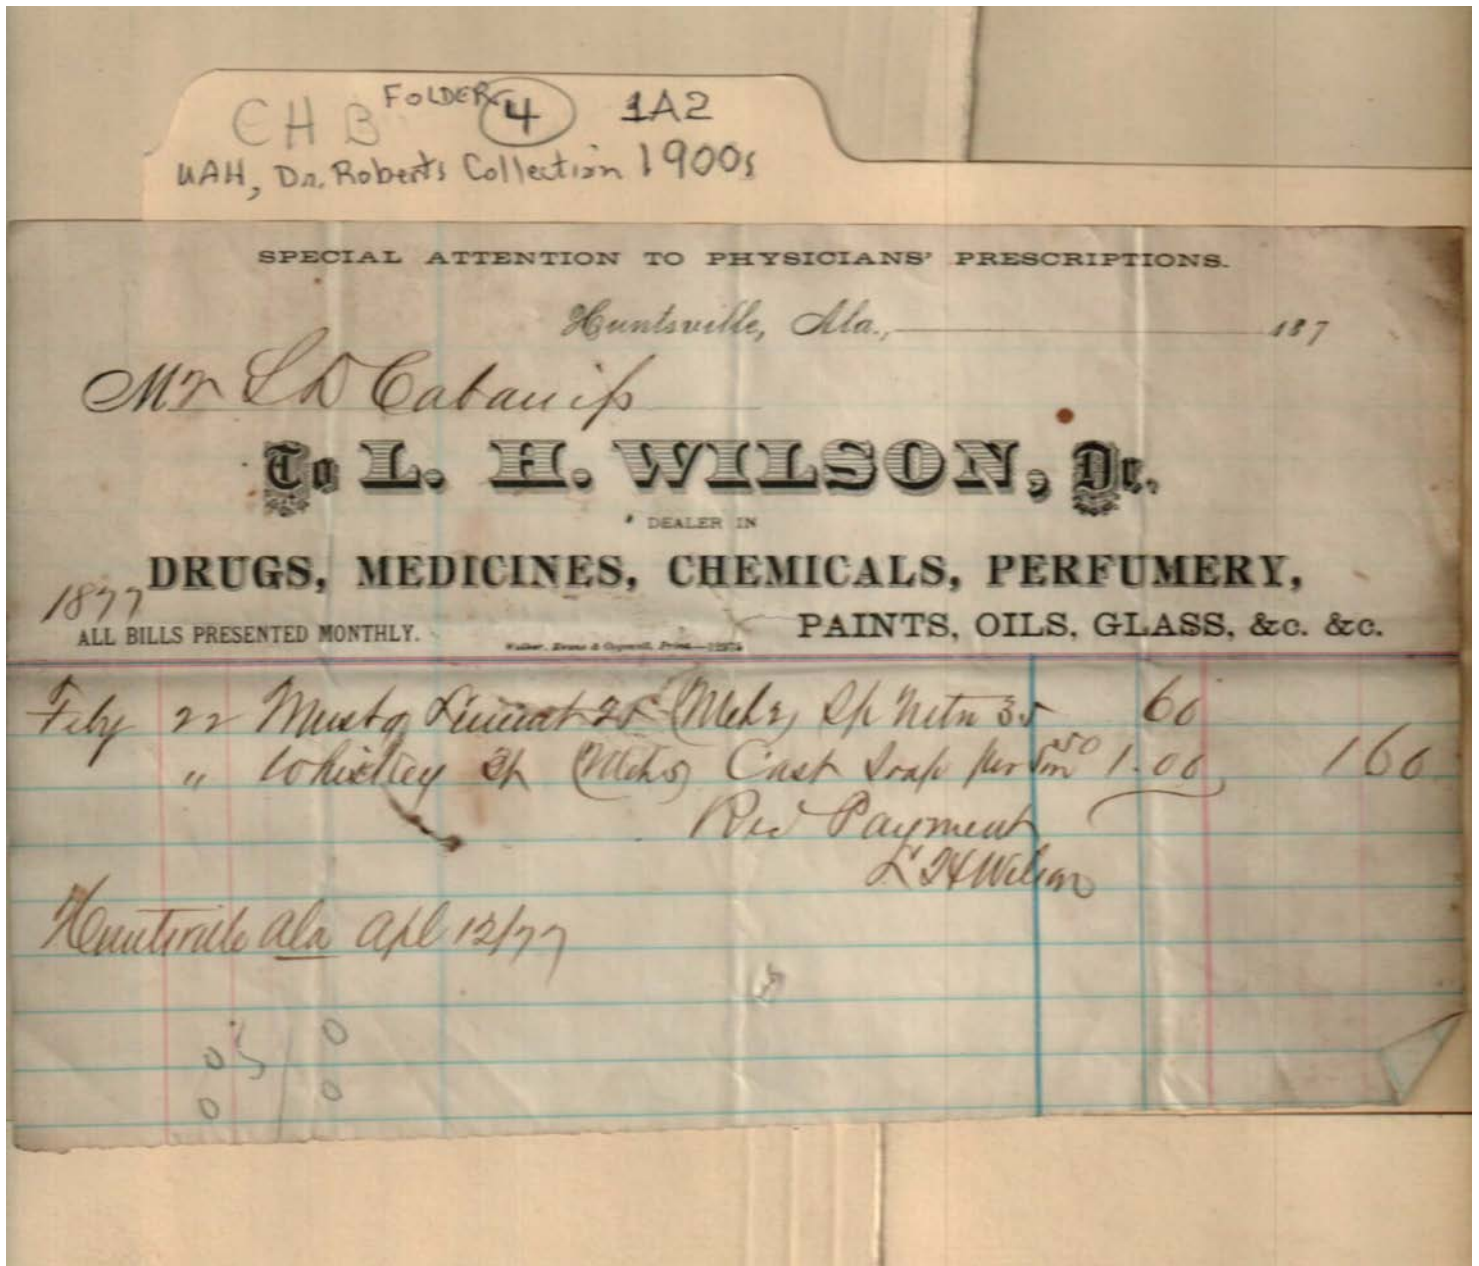 CHB FOLDER 4 1A2
UAH, Dr. Roberts Collection 1900s
SPECIAL ATTENTION TO PHYSICIANS' PRESCRIPTIONS.
Huntsville, Ala., 187
Mr S D Cabaniss
To L. H. WILSON, Dr.
DEALER IN
DRUGS, MEDICINES, CHEMICALS, PERFUMERY,
1877
PAINTS, OILS, GLASS, &c. &c.
ALL BILLS PRESENTED MONTHLY.
Walker, Evans & Cogswell, Print
Feby 22 Mustg Liniment 25 Sp Nitr 35 60
" Whiskey Cast Soap 50 1.00 160
Recd Payment
L H Wilson
Huntsville Ala Apl 12/77